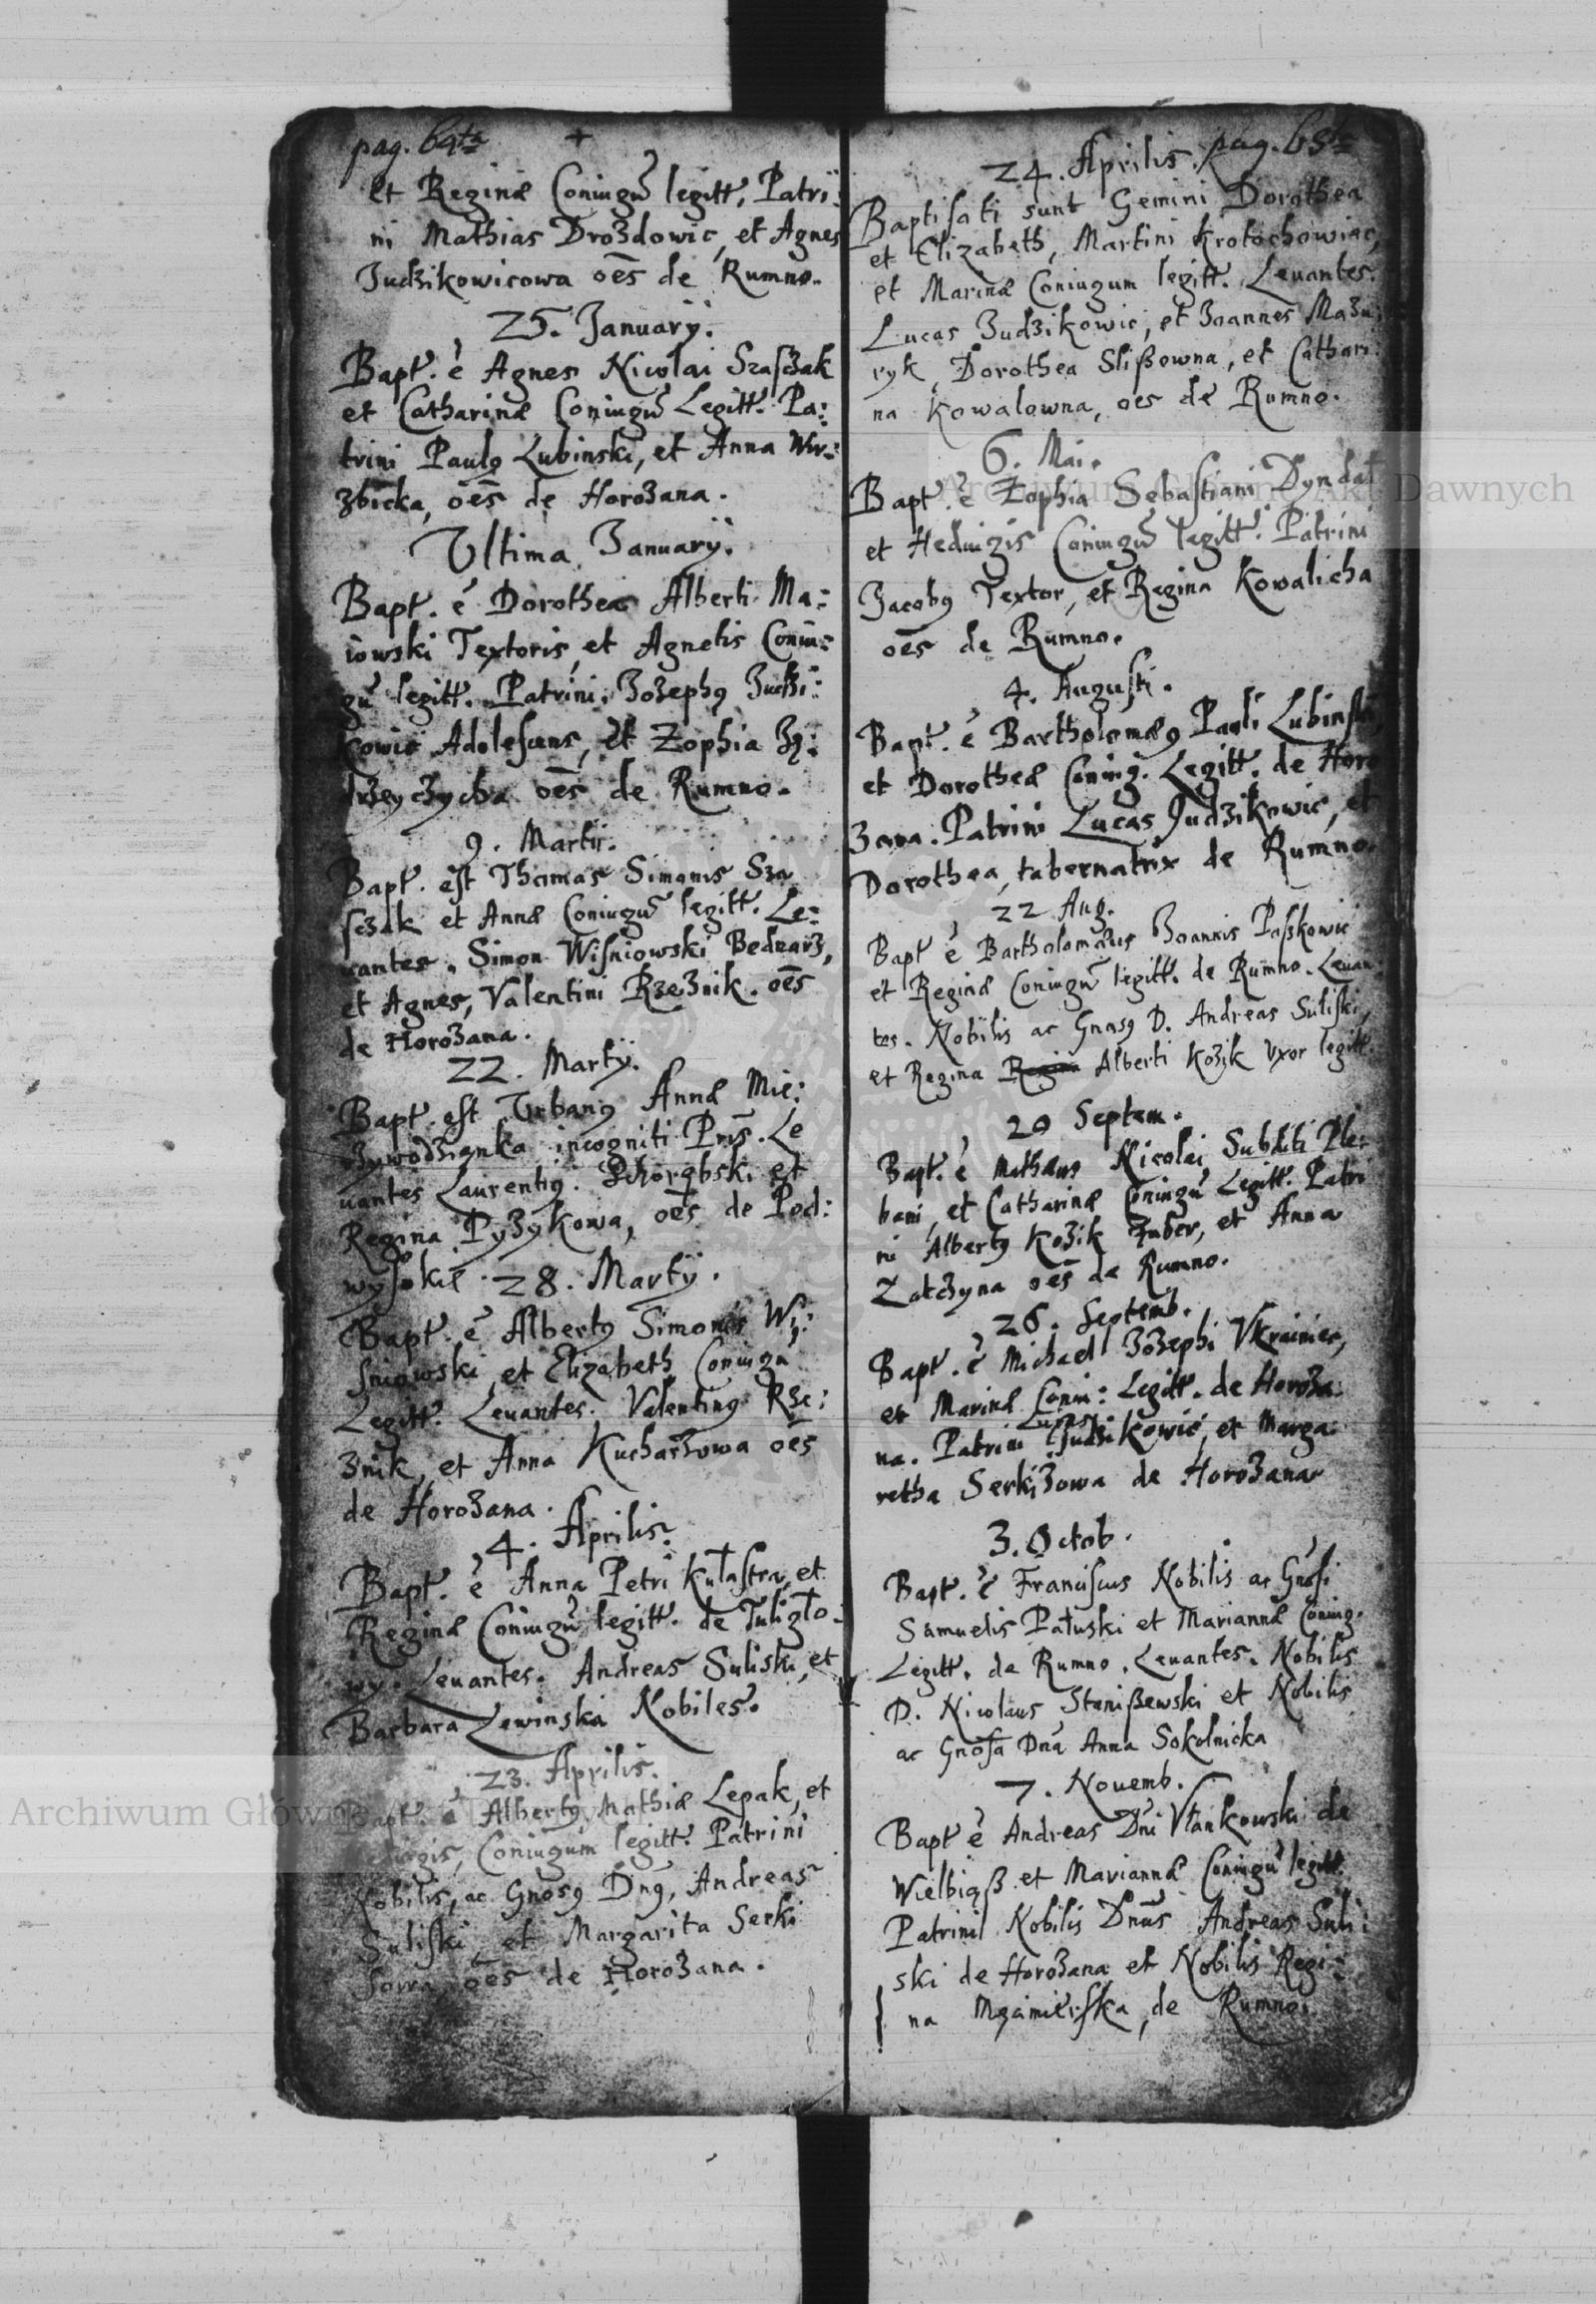 pag. 64ta
+
et Reginæ Coniugũ legitt. Patri:
ni Mathias Drozdowic, et Agnes
Judzikowicowa oẽs de Rumno.
25. Januarÿ.
Bapt. ẽ Agnes Nicolai Szasczak
et Catharinæ Coniugũ Legitt. Pa:
trini Paulꝰ Lubinski, et Anna Wir:
zbicka, oẽs de Horozana.
Vltima Januarÿ.
Bapt. ẽ Dorothea Alberti Ma:
iowski Textoris, et Agnetis Coniu:
gũ legitt. Patrini. Jozephꝰ Judzi:
kowic Adolescens, et Zophia Ję:
drzeyczycha oẽs de Rumno.
9. Martii.
Bapt. est Thomas Simonis Sza
sczak et Annæ Coniugũ legitt. Le:
uantes. Simon Wisniowski Bednarz,
et Agnes, Valentini Rzeznik. oẽs
de Horozana.
22. Martÿ.
Bapt. est Vrbanꝰ Annæ Mie:
dzywodzianka incogniti Pris. Le
uantes Laurentiꝰ. Chorąbski et
Regina Pyzykowa, oẽs de Pod:
wysokie. 28. Martÿ.
Bapt. ẽ Albertꝰ Simonis Wi:
sniowski et Elizabeth Coniugũ
Legitt. Leuantes. Valentinꝰ Rze:
znik, et Anna Kucharzowa oẽs
de Horozana.
4. Aprilis.
Bapt. ẽ Anna Petri Kułastra, et
Reginæ Coniugũ legitt. de Tuligło:
wy. Leuantes. Andreas Suliski, et
Barbara Zewinska Nobiles.
23. Aprilis.
Bapt. ẽ Albertꝰ Mathiæ Lepak, et
Hedvigis, Coniugum legitt. Patrini
Nobilis, ac Gnosꝰ Dnꝰ, Andreas
Suliski, et Margarita Serki
sowa oẽs de Horozana.
pag. 65ta
24. Aprilis.
Baptisati sunt Gemini Dorothea
et Elizabeth, Martini Krotochowiec,
et Marinæ Coniugum legitt. Leuantes.
Lucas Judzikowic, et Joannes Mazu:
ryk, Dorothea Slißowna, et Cathari:
na Kowalowna, oẽs de Rumno.
6. Mai.
Bapt. ẽ Zophia Sebastiani Dyndał
et Heduigis Coniugũ legitt. Patrini
Jacobꝰ Textor, et Regina Kowalicha
oẽs de Rumno.
4. Augusti.
Bapt. ẽ Bartholomæꝰ Pauli Lubinski
et Dorotheæ Coniug. Legitt. de Horo
zana. Patrini Lucas Judzikowic, et
Dorothea, tabernatrix de Rumno.
22 Aug.
Bapt ẽ Bartholomæus Joannis Paßkowic
et Reginæ Coniugũ legitt. de Rumno. Leuan:
tes. Nobilis ac Gnosꝰ D. Andreas Suliski,
et Regina Regina Alberti Kozik Vxor legitt.
20 Septem.
Bapt. ẽ Mathæus Nicolai Subditi Ple:
bani, et Catharinæ Coniugũ Legitt. Patri
ni Albertꝰ Kozik Faber, et Anna
Zatczyna oẽs de Rumno.
26. Septemb.
Bapt. ẽ Michael Jozephi Vkrainiec,
et Marinæ Coniu: Legitt. de Horoza:
na. Patrini Lucas Judzikowic, et Marga:
retha Serkizowa de Horozana
3. Octob.
Bapt. ẽ Franciscus Nobilis ac Gnosi
Samuelis Pałuski et Mariannæ Coniug.
Legitt. de Rumno. Leuantes. Nobilis
D. Nicolaus Stanißewski et Nobilis
ac Gnosa Dna Anna Sokolnicka
7. Nouemb.
Bapt ẽ Andreas Dni Vłankowski de
Wielbiąß et Mariannæ Coniugũ legitt.
Patrini Nobilis Dnus Andreas Suli:
ski de Horozana et Nobilis Regi:
na, de Rumno.
Archiwum Główne Akt Dawnych
Archiwum Główne Akt Dawnych